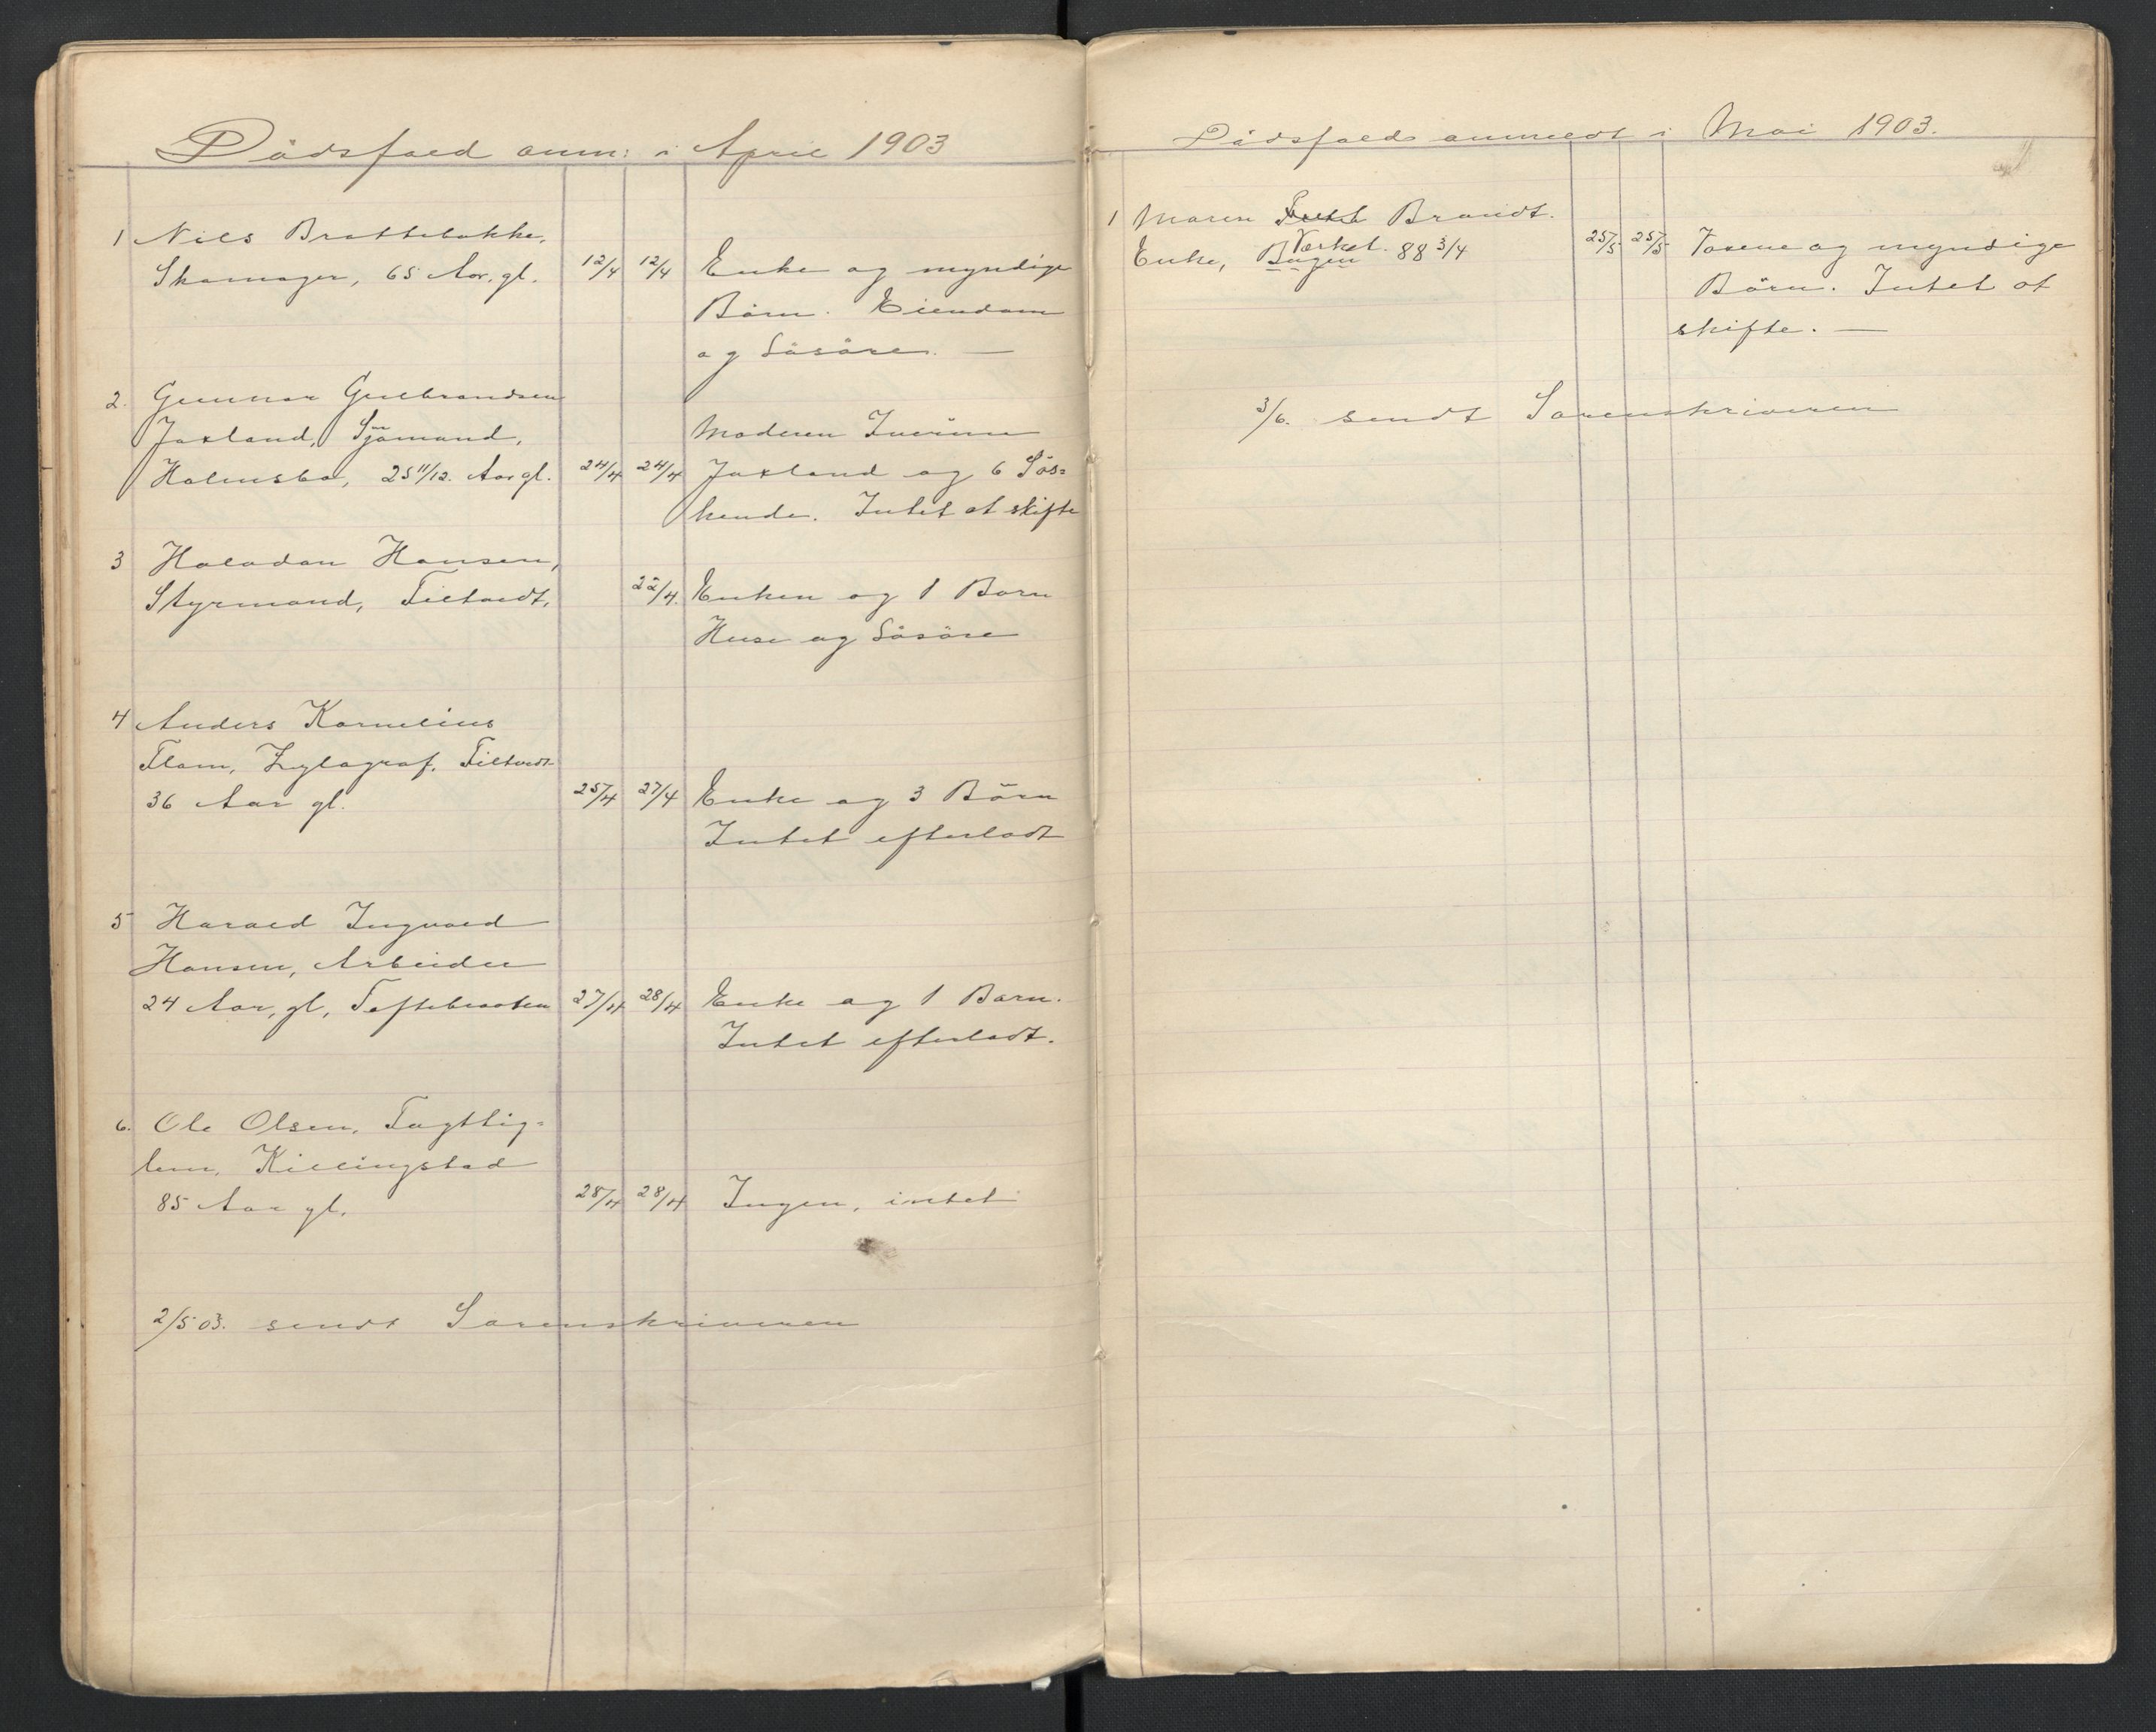 Dödsfald anm: i April 1903
1 Nils Brattebakke,
Skomager, 65 Aar, gl. 12/4 12/4 Enke og myndige
Börn. Eiendom
og Lösöre. —
2. Gunnar Gulbrandsen
Jaxland, Sjömand, Moderen
Holmsbo, 25 11/12. Aar gl. 24/4 24/4 Jaxland og 6 Sös=
kende. Intet at skifte
3 Halvdan Hansen,
Styrmand, Filtvedt, 22/4. Enken og 1 Barn
Huse og Lösöre
4 Anders Kornelius
Flom, Zylograf, Filtvedt
36 Aar gl. 25/4 27/4 Enke og 3 Börn
Intet efterladt
5 Harald Ingvald
Hansen, Arbeider
24 Aar, gl, Toftebraaten 27/4 28/4 Enke og 1 Barn.
Intet efterladt.
6. Ole Olsen, Fagttig=
lem, Killingstad
85 Aar gl. 28/4 28/4 Ingen, intet
2/5 03. sendt Sorenskriveren
Dödsfald anmeldt i Mai 1903.
1 Maren Brandt.
Enke, Værket. 88 3/4 25/5 25/5 Voxne og myndige
Bugen
Börn. Intet at
skifte. —
3/6. sendt Sorenskriveren